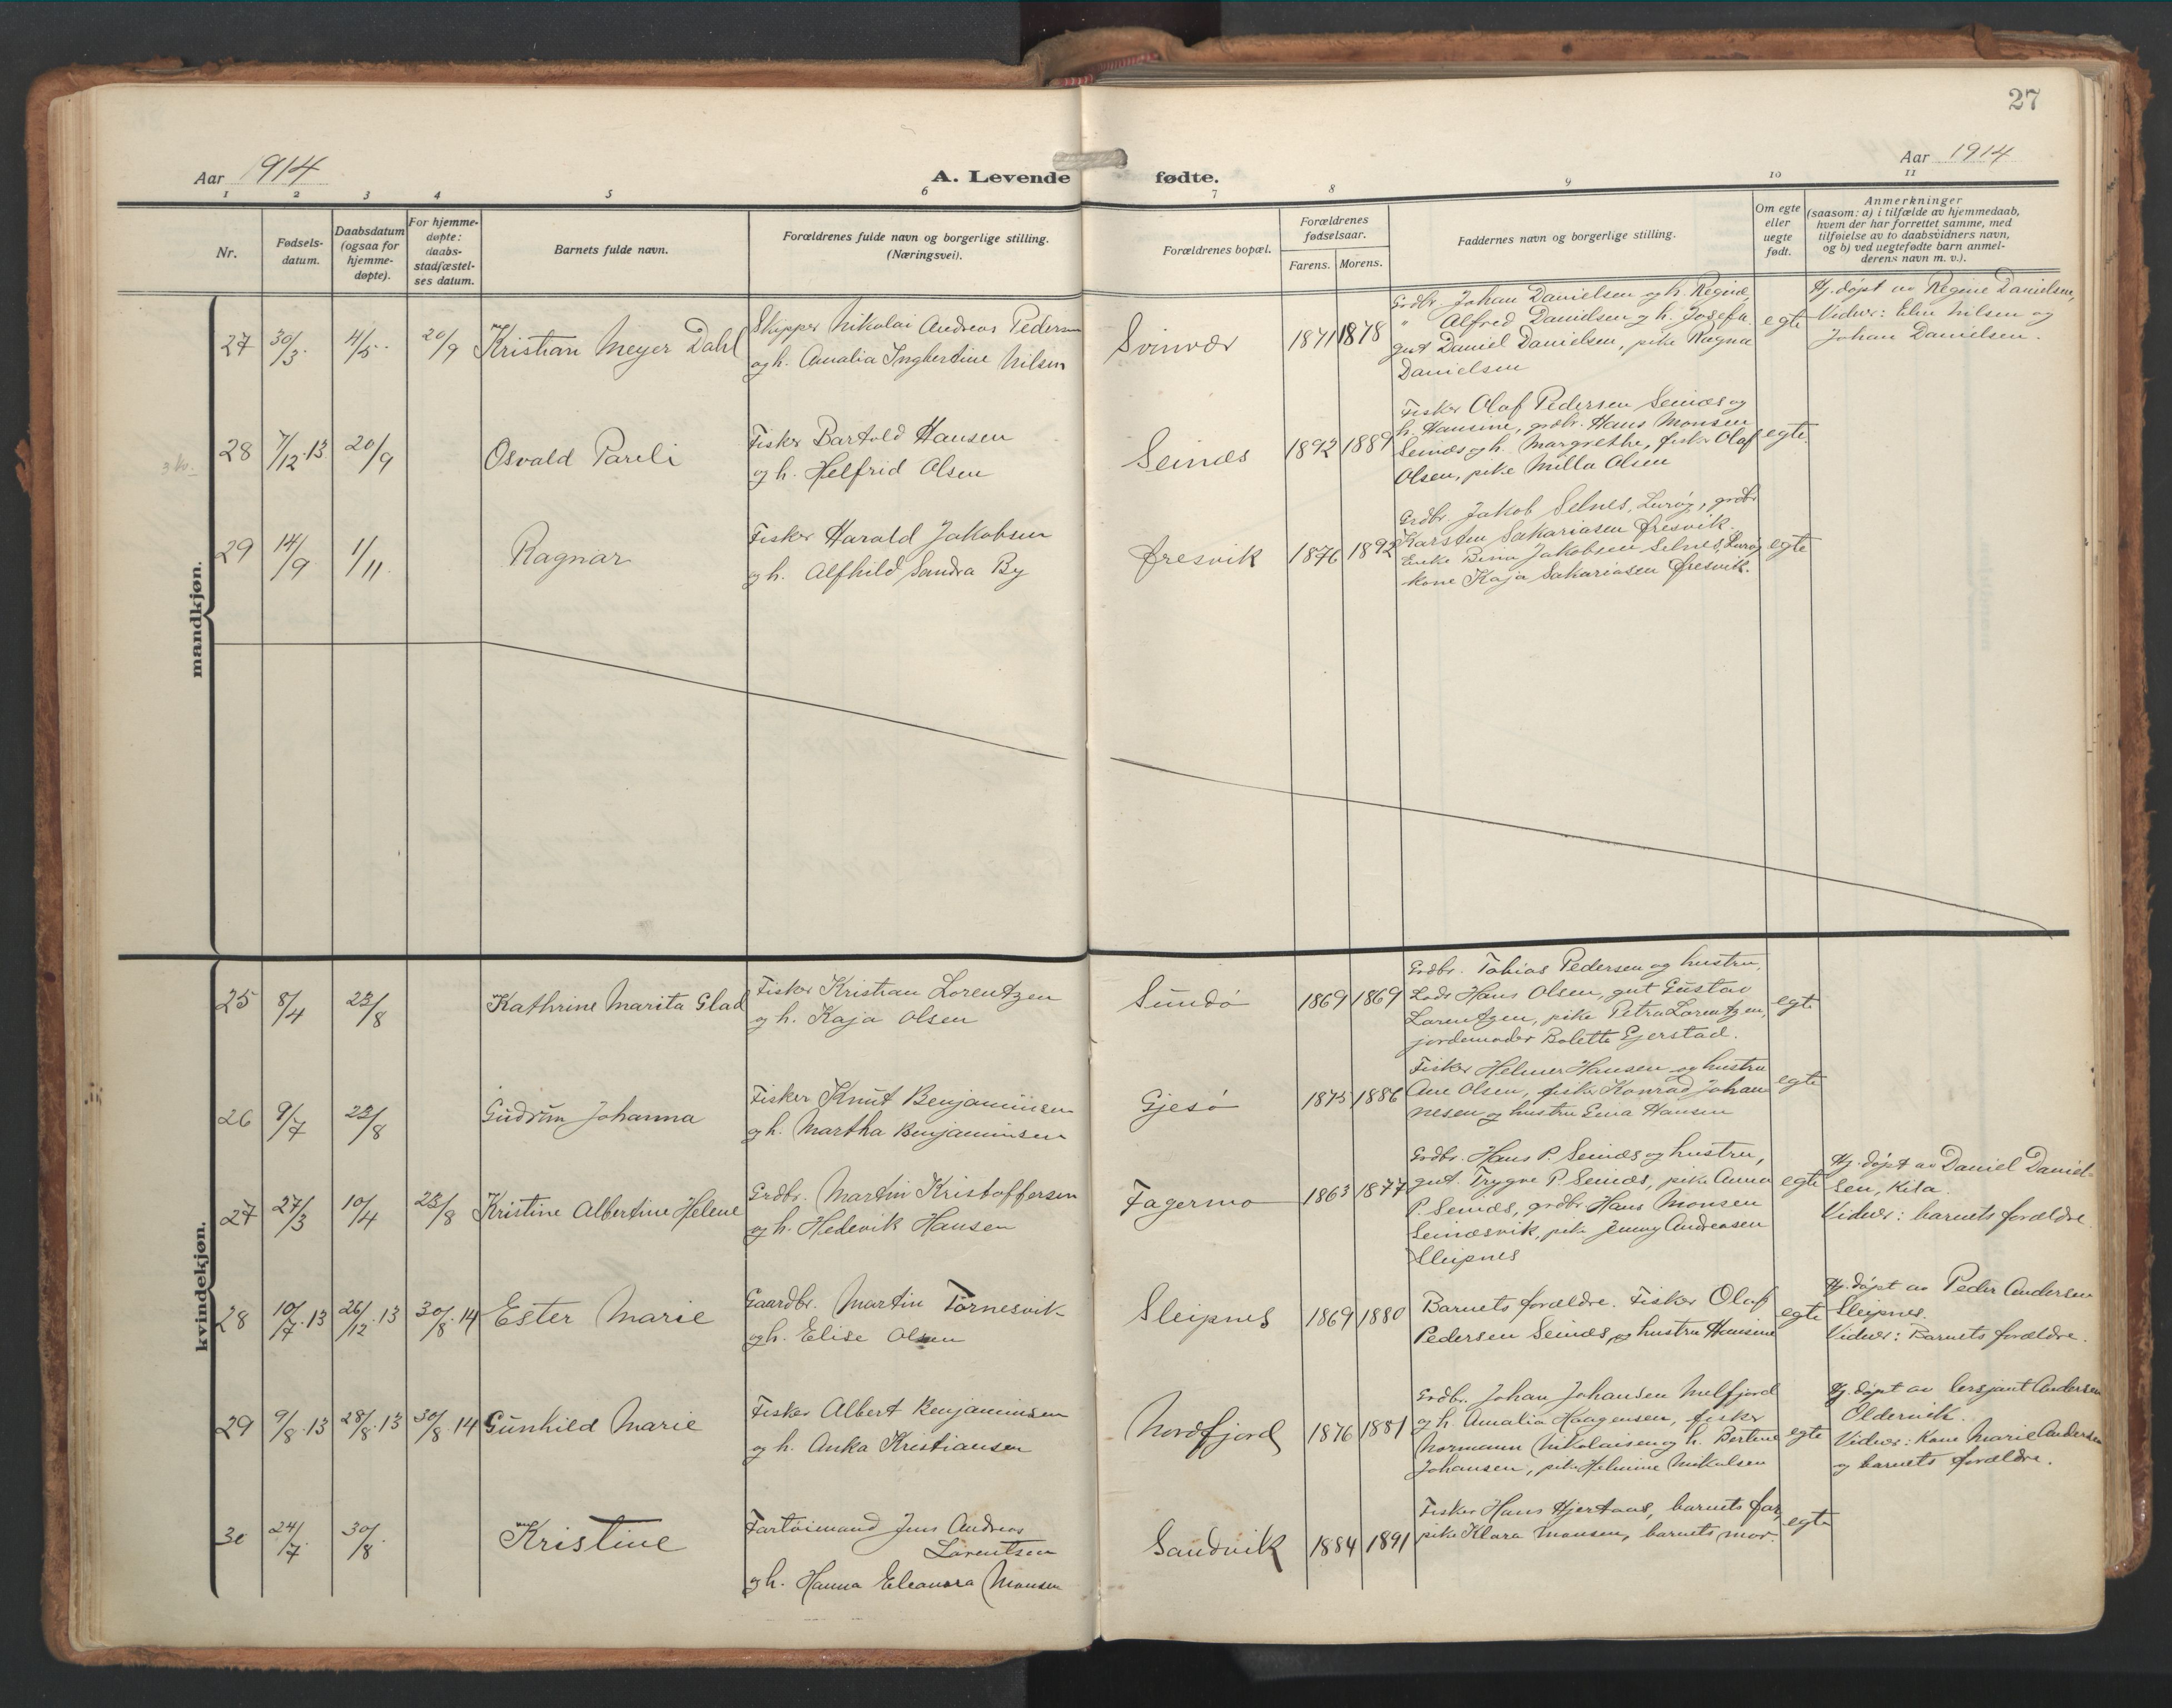 27
Aar 1914
A. Levende fødte.
Aar 1914
1 2 3 4 5 6 7 8 9 10 11
Nr.
Fødsels-
datum.
Daabsdatum
(ogsaa for
hjemme-
døpte).
For hjemme-
døpte:
daabs-
stadfæstel-
ses datum.
Barnets fulde navn.
Forældrenes fulde navn og borgerlige stilling.
(Næringsvei).
Forældrenes bopæl.
Forældrenes
fødselsaar.
Farens. Morens.
Faddernes navn og borgerlige stilling.
Om egte
eller
uegte
født.
Anmerkninger
(saasom: a) i tilfælde av hjemmedaab,
hvem der har forrettet samme, med
tilføielse av to daabsvidners navn,
og b) ved uegtefødte barn anmel-
derens navn m. v.).
mandkjøn.
27 30/3. 4/5. 20/9 Kristian Meyer Dahl
Skipper Nikolai Andreas Pedersen
og h. Amalia Ingbertine Nilsen
Svinvær 1871 1878
Grdbr. Johan Danielsen og h. Regine,
" Alfred Danielsen og h. Josefa
gut Daniel Danielsen, pike Ragna
Danielsen
egte
Hj. døpt av Regine Danielsen,
Vidner: Elin Nilsen og
Johan Danielsen.
28 7/12.13 20/9 Osvald Pareli
Fisker Bartold Hansen
og h. Helfrid Olsen
Seinæs 1892 1889
Fisker Olaf Pedersen Seinæs og
h. Hansine, grdbr. Hans Monsen
Seinæs og h. Margrethe, fisker Olaf
Olsen, pike Milla Olsen
egte.
29 14/9 1/11. Ragnar
Fisker Harald Jakobsen
og h. Alfhild Sandra By
Øresvik 1876 1892
Grdbr. Jakob Selnes, Lurøy, grdbr
Karsten Sakariasen Øresvik.
Enke Bina Jakobsen Selnes, Lurøy
kone Kaja Sakariasen Øresvik.
egte
kvindekjøn.
25 8/4 23/8 Kathrine Marita Glad
Fisker Kristian Lorentzen
og h. Kaja Olsen
Sundø 1869 1869
Grdbr. Tobias Pedersen og hustru,
Lods Hans Olsen, gut Gustav
Lorentzen, pike Petra Lorentzen,
jordemoder Bolette Ejerstad.
egte
26 9/7 23/8 Gudrun Johanna
Fisker Knut Benjaminsen
og h. Martha Benjaminsen
Gjesø 1875 1886
Fisker Helmer Hansen og hustru
Ane Olsen, fisker Konrad Johan
nesen og hustru Gina Hansen
egte
27 27/3 10/4 23/8 Kristine Albertine Helene
Grdbr. Martin Kristoffersen
og h. Hedevik Hansen
Fagermo 1863 1877
Grdbr. Hans P. Seinæs og hustru,
gut. Trygve P. Seinæs, pike Anna
P. Seinæs, grdbr. Hans Monsen
Seinæsvik, pike Jenny Andreasen
Sleipnes
egte
Hj. døpt av Daniel Daniel-
sen, Kila.
Vidner: barnets forældre.
28 10/7.13 26/12.13 30/8.14 Ester Marie
Gaardbr. Martin Tørnesvik
og h. Elise Olsen
Sleipnes 1869 1880
Barnets forældre. Fisker Olaf
Pedersen Seinæs, og hustru Hansine
egte
Hj. døpt av Peder Andersen
Sleipnes.
Vidner: Barnets forældre.
29 9/8.13 28/8.13 30/8.14 Gunhild Marie
Fisker Albert Benjaminsen
og h. Anka Kristiansen
Nordfjord 1876 1881
Grdbr. Johan Johansen Melfjord
og h. Amalia Haagensen, fisker
Normann Nikolaisen og h. Bertine
Johansen, pike Helmine Mikalsen
egte
Hj. døpt av Sersjant Andersen
Oldervik.
Vidner: Kone Marie Andersen
og barnets forældre.
30 24/7 30/8 Kristine
Fartøimand Jens Andreas
Lorentsen
og h. Hanna Eleonora Monsen
Sandvik 1884 1891
Fisker Hans Hjertaas, barnets far,
pike Klara Monsen, barnets mor.
egte